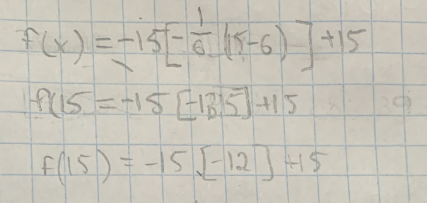 f(x) = -15[-1/6 (15-6) ] +15
f(15 = -15 [-1.5] +15
f(15) = -15 [-12] +15